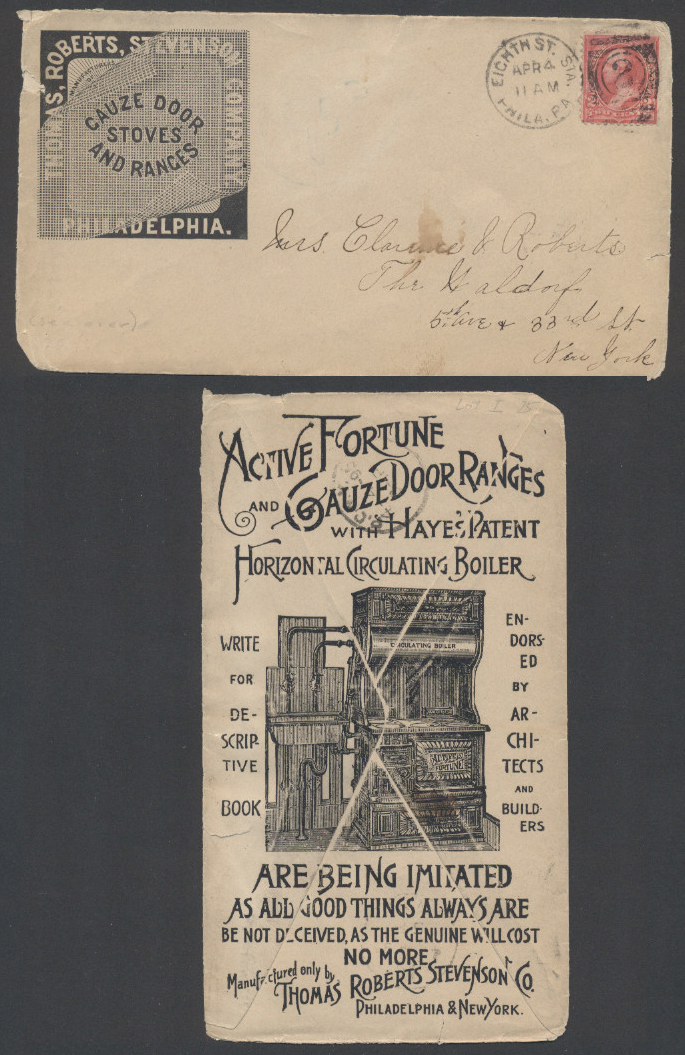 THOMAS, ROBERTS, STEVENSON COMPANY.
GAUZE DOOR
STOVES
AND RANGES
PHILADELPHIA.
EIGHTH ST. STA.
APR 4
11 AM
PHILA. PA.
2
Mrs. Clarence S. Roberts
The Waldorf
5th Ave & 33rd St
New York
(see over)
LOT I 25
ACTIVE FORTUNE
AND GAUZE DOOR RANGES
WITH HAYES PATENT
HORIZONTAL CIRCULATING BOILER
CIRCULATING BOILER
ACTIVE
FORTUNE
WRITE
FOR
DE-
SCRIP-
TIVE
BOOK
EN-
DORS-
ED
BY
AR-
CHI-
TECTS
AND
BUILD-
ERS
ARE BEING IMITATED
AS ALL GOOD THINGS ALWAYS ARE
BE NOT DECEIVED, AS THE GENUINE WILL COST
NO MORE
Manufactured only by
THOMAS ROBERTS STEVENSON CO.
PHILADELPHIA & NEW YORK.